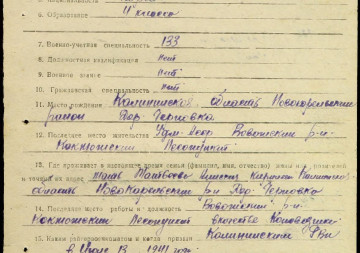 6. Образование 4 класса
7. Военно-учетная специальность 133
8. Должностная квалификация нет
9. Военное звание нет
10. Гражданская специальность нет
11. Место рождения Калининская область Новокарельский
район дер Терповка
12. Последнее место жительства Удм-АССР Вовожский р-н
Какможский Лесопункт
13. Где проживает в настоящее время семья (фамилия, имя, отчество) жены или родителей
и точный их адрес жена Калинин
область Новокарельский р-н дер-Терповка
14. Последнее место работы и должность Вовожский р-н
Какможский Лесопункт
15. Каким райвоенкоматом и когда призван Калининский РВК
в Июле 13 1941 года